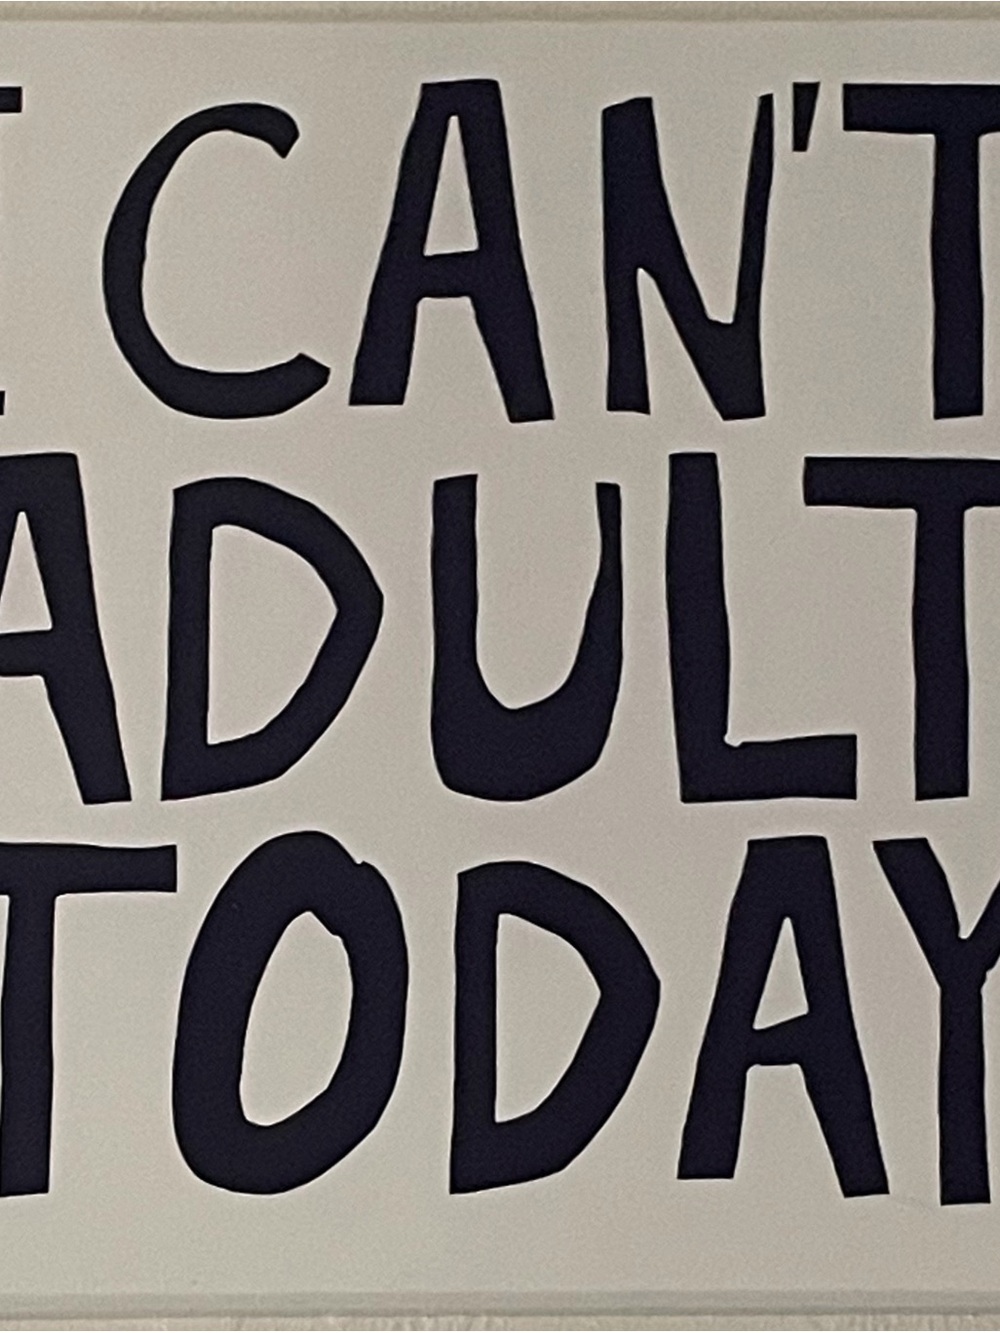 I CAN'T
ADULT
TODAY